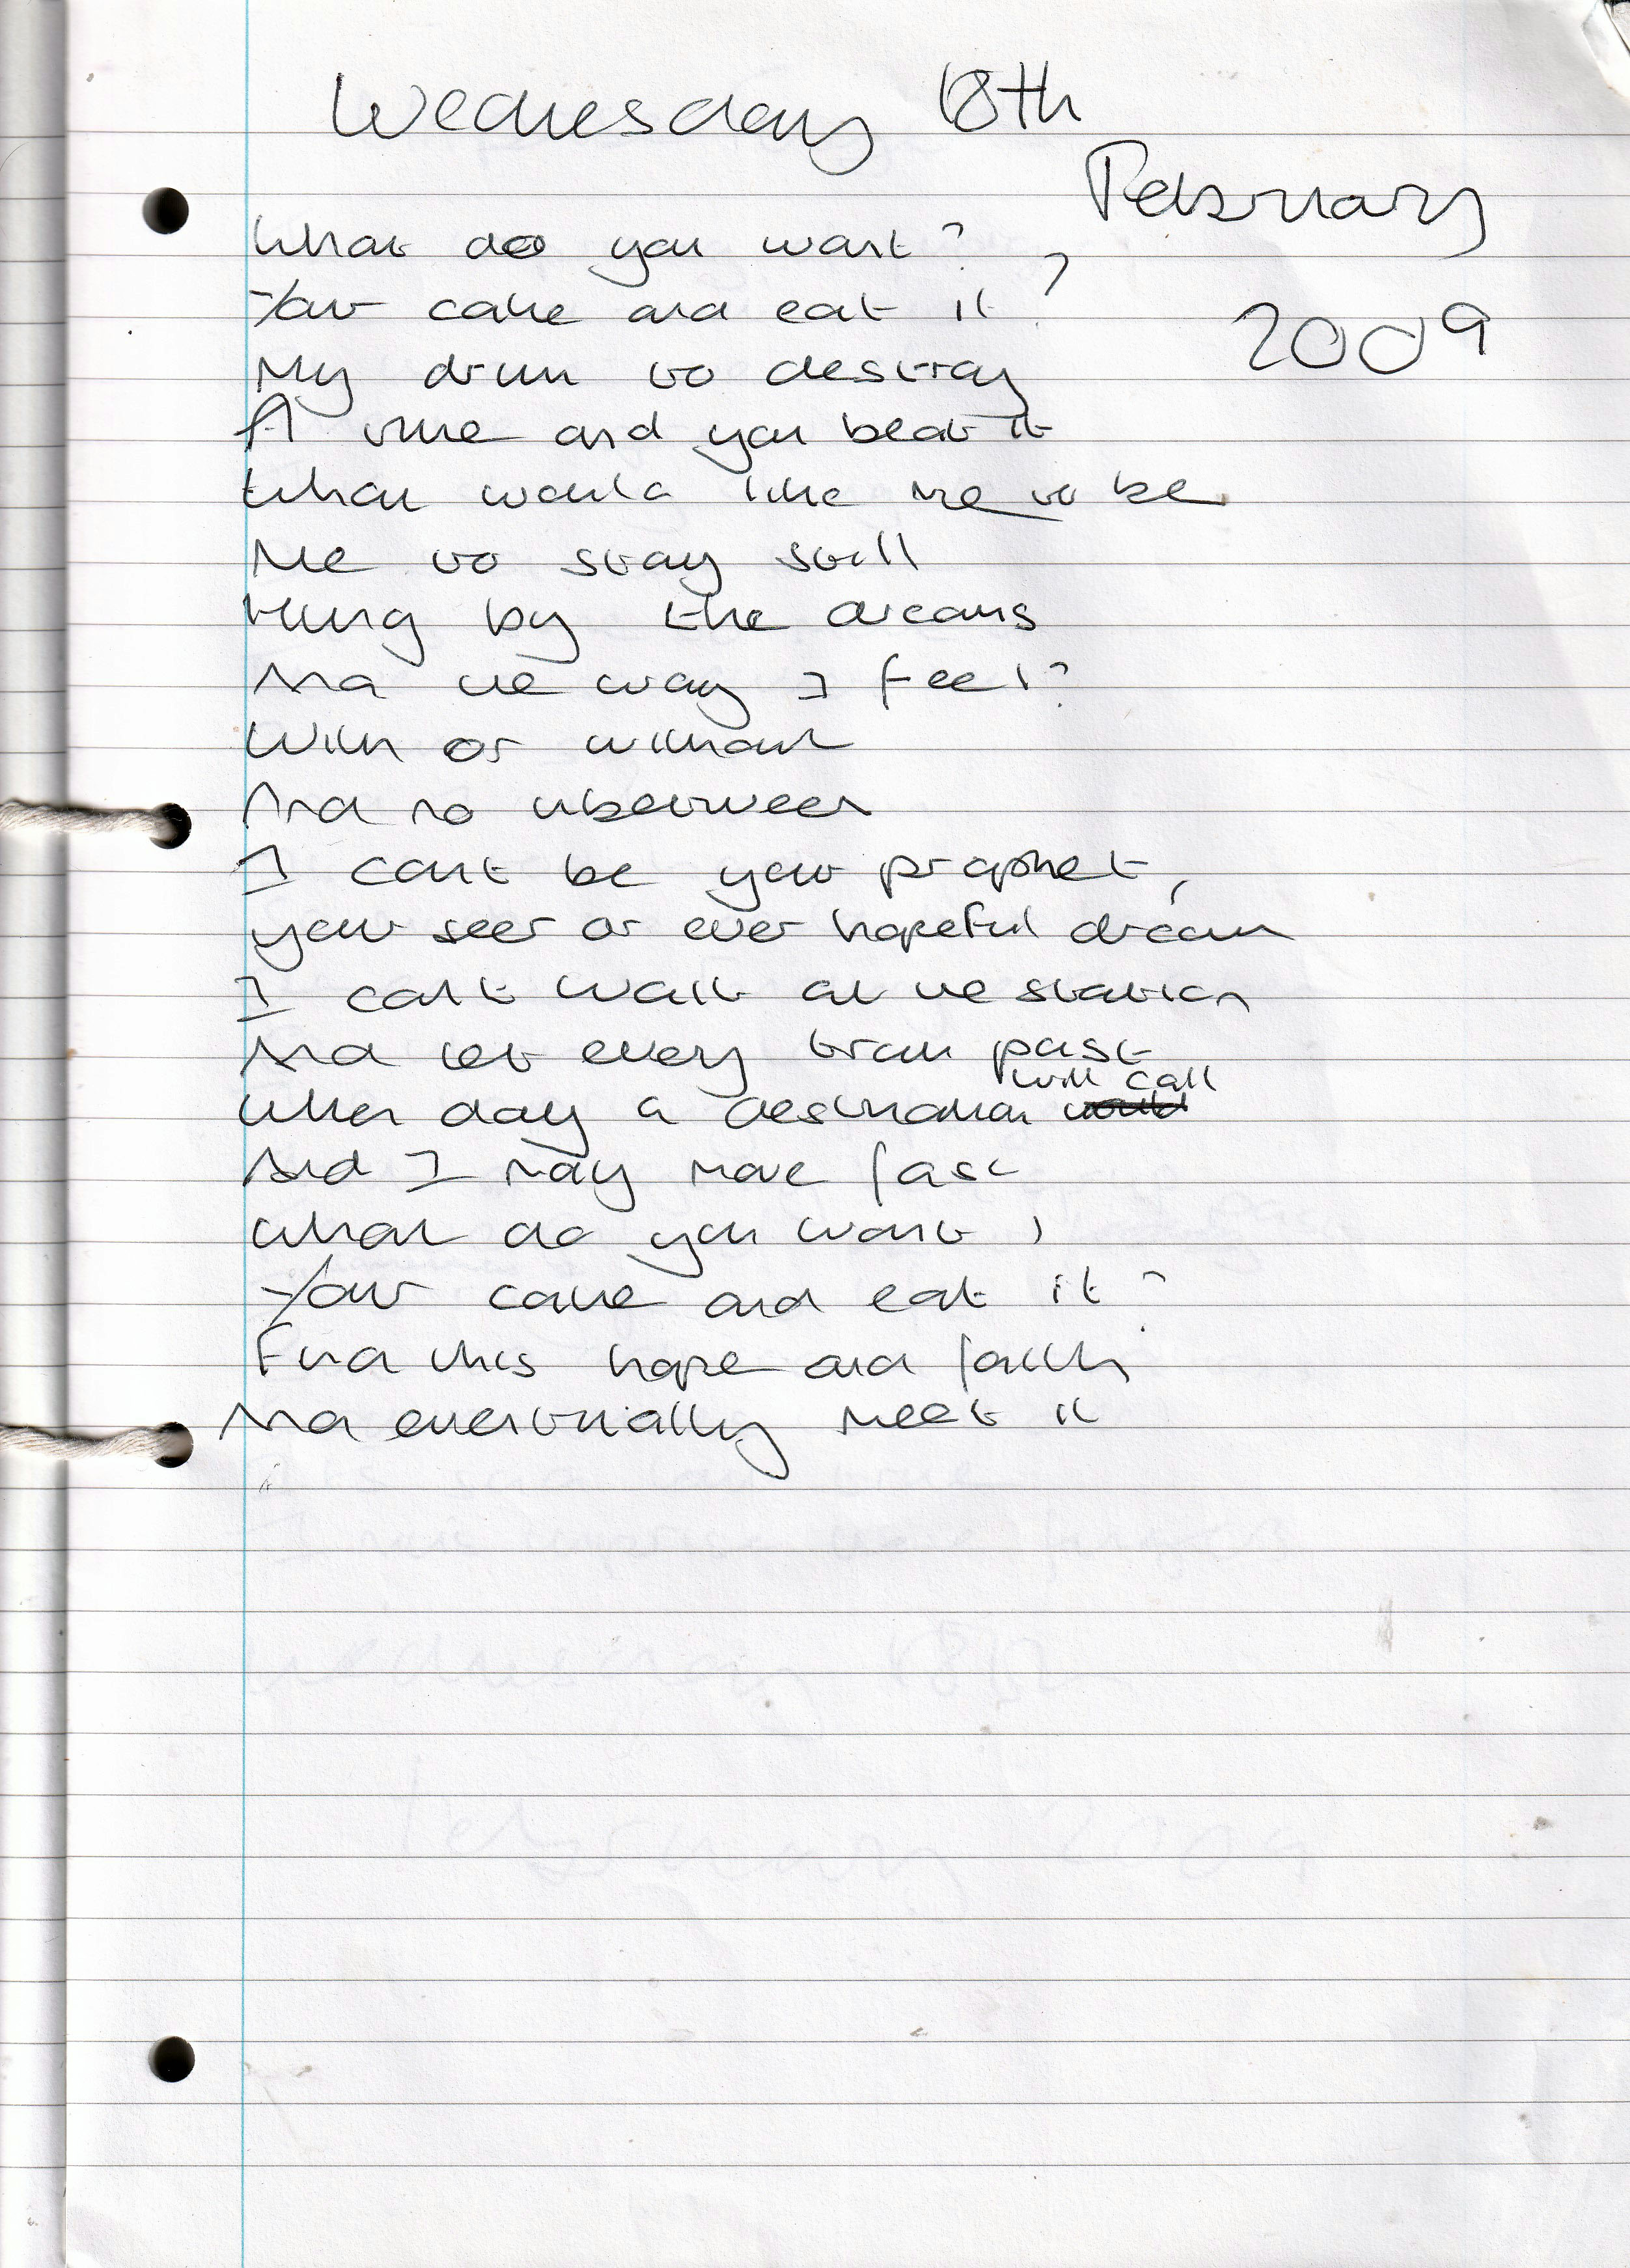 Wednesday 18th
February
2009
What do you want?
Your cake and eat it?
My drum to destroy
A time and you beat it
What would like me to be
Me to stay still
Hung by the dreams
And the way I feel?
With or without
And no inbetween
I cant be your prophet,
your seer or ever hopeful dream
I cant wait at the station
And let every train past
When day a destination will call
And I may move fast
What do you want?
Your cake and eat it?
Find this hope and faith
And eventually meet it